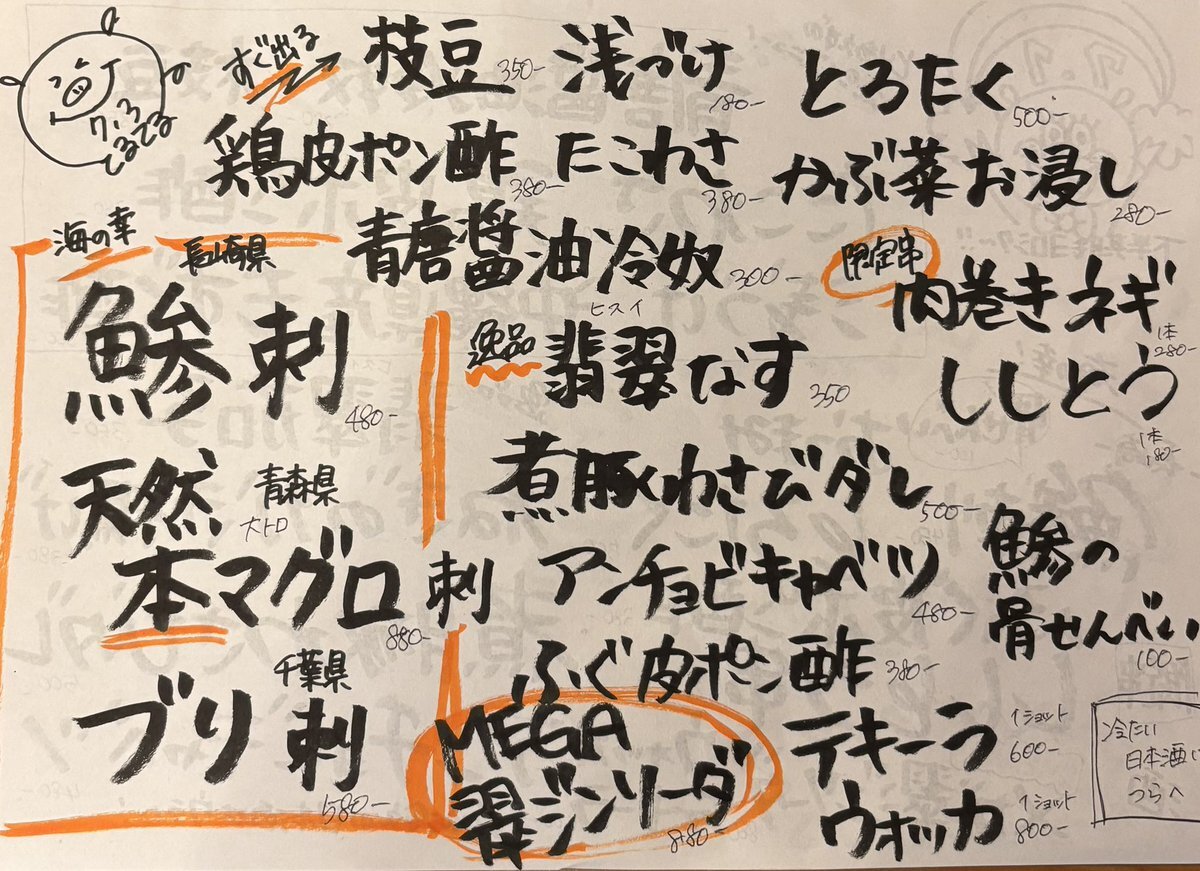 7.3
てるてる
すぐ出る
枝豆 350-
浅づけ 180-
とろたく 500-
鶏皮ポン酢 380-
たこわさ 380-
かぶ菜お浸し 280-
青唐醤油冷奴 300-
海の幸
長崎県
鯵刺 480-
天然
青森県
大トロ
本マグロ刺 880-
千葉県
ブリ刺 580-
ヒスイ
逸品 翡翠なす 350
煮豚わさびダし 500-
アンチョビキャベツ 480-
ふぐ皮ポン酢 380-
限定串
肉巻きネギ 1本 280-
ししとう 1本 180-
鯵の
骨せんべい
100-
MEGA
翠ジンソーダ 880-
テキーラ 1ショット 600-
ウオッカ 1ショット 800-
冷たい
日本酒い
うらへ